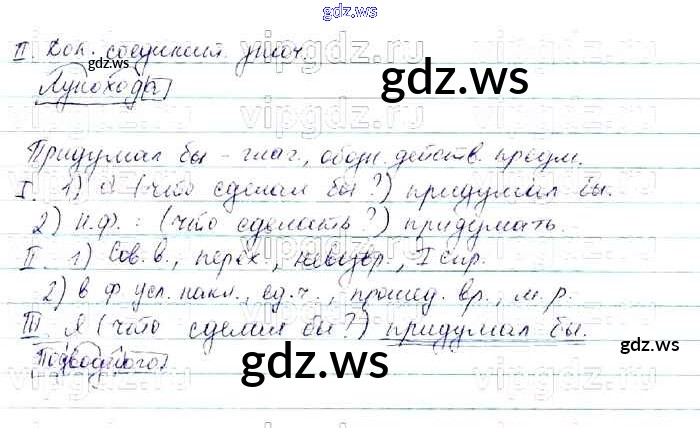 gdz.ws
II. Доп. соединит. знач.
gdz.ws
gdz.ws
Лунохода
Придумал бы – глаг., обозн действ. предм.
I. 1) я (что сделал бы?) придумал бы.
2) Н.ф.: (что сделать?) придумать.
II. 1) Сов.в., перех., невозвр., I спр.
2) в ф усл. накл., ед.ч., прошед. вр., м.р.
III Я (что сделал бы?) придумал бы.
Подводного
gdz.ws
gdz.ws
gdz.ws